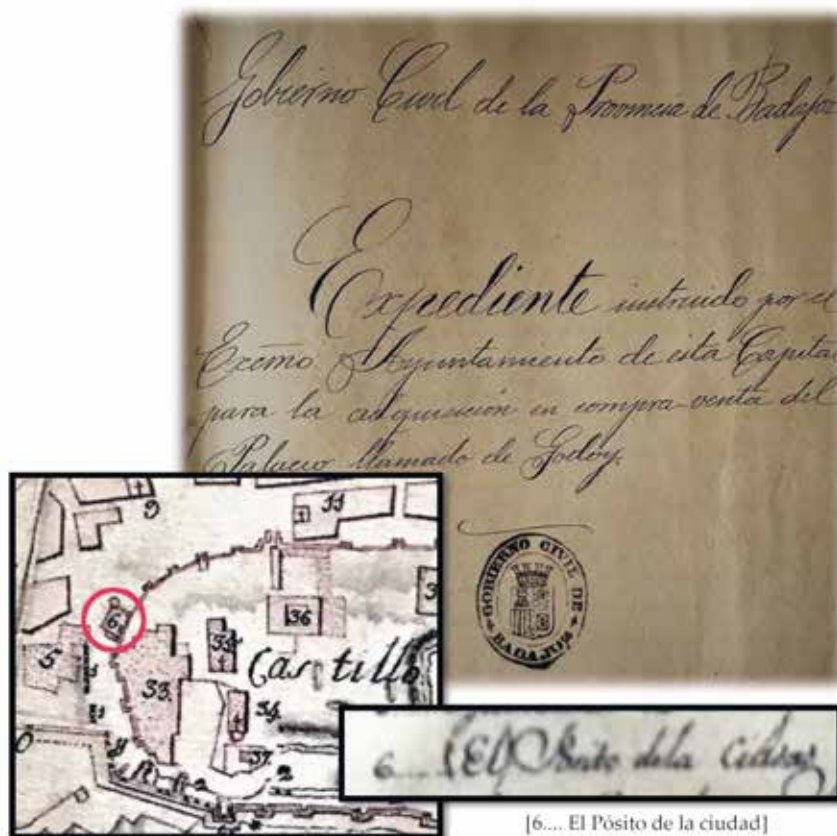 Gobierno Civil de la Provincia de Badajoz
Expediente instruido por el
Excmo. Ayuntamiento de esta Capital
para la adquisición en compra-venta del
Palacio llamado de Godoy.
GOBIERNO CIVIL DE
BADAJOZ
9
11
6
36
5
33
35
Castillo
34
37
2
6.... El Pósito dela Ciudad
[6.... El Pósito de la ciudad]